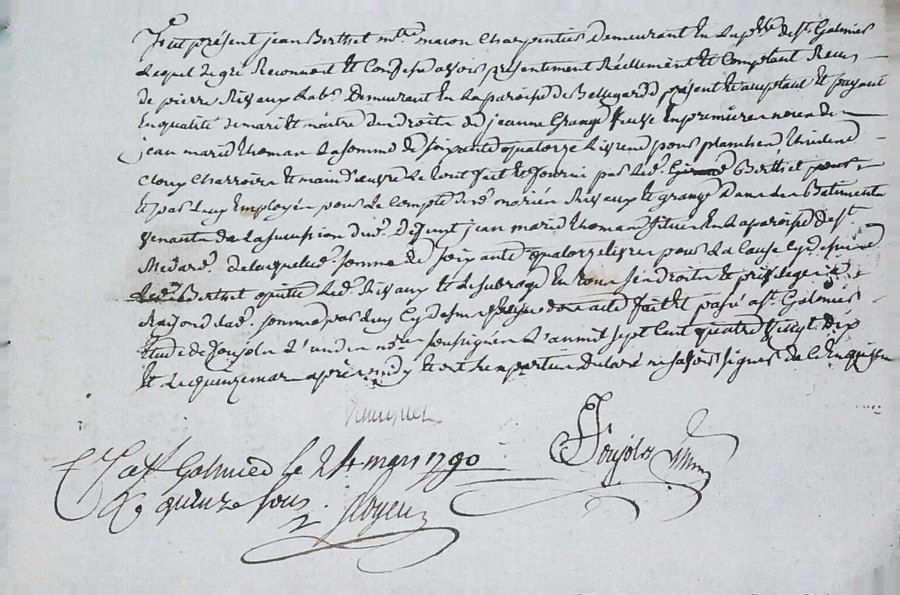 fut présent jean Berthet mtre macon charpentier demeurant en la p.sse de st Galmier
lequel de gré Reconnoit et Confesse avoir présentement Réellement et Comptant Receu
de pierre Rivaux lab.r demeurant en la paroisse de Bellegarde présent et acceptant et payant
En qualité de mari et maitre des droits de jeanne Grange veuve en premieres noces de
jean marie thomas la somme de soixante quatorze livres pour planches
Cloux Charroire et main d'œuvre le tout fait et fourni par led. Berthet
et par luy Employés pour le compte des mariés Rivaux et grange dans des Batiments
venants de la succession dud. deffunt jean marie thomas situes en la paroisse de st
Medard. de laquelle somme de soixante quatorze livres pour la cause cy dessus
led. Berthet quitte led. Rivaux et le subroge en tous ses droits et privileges a
Raison de lad. somme par luy cy dessus dont acte fait et passé a st Galmier
Etude de joujoly l'un des nores soussignés l'an mil sept Cent quatre vingt dix
et le quinze mars après midy et ont les parties declaré ne savoir signer de ce Enquises
C. a st Galmier le 24 mars 1790
R. quinze sous